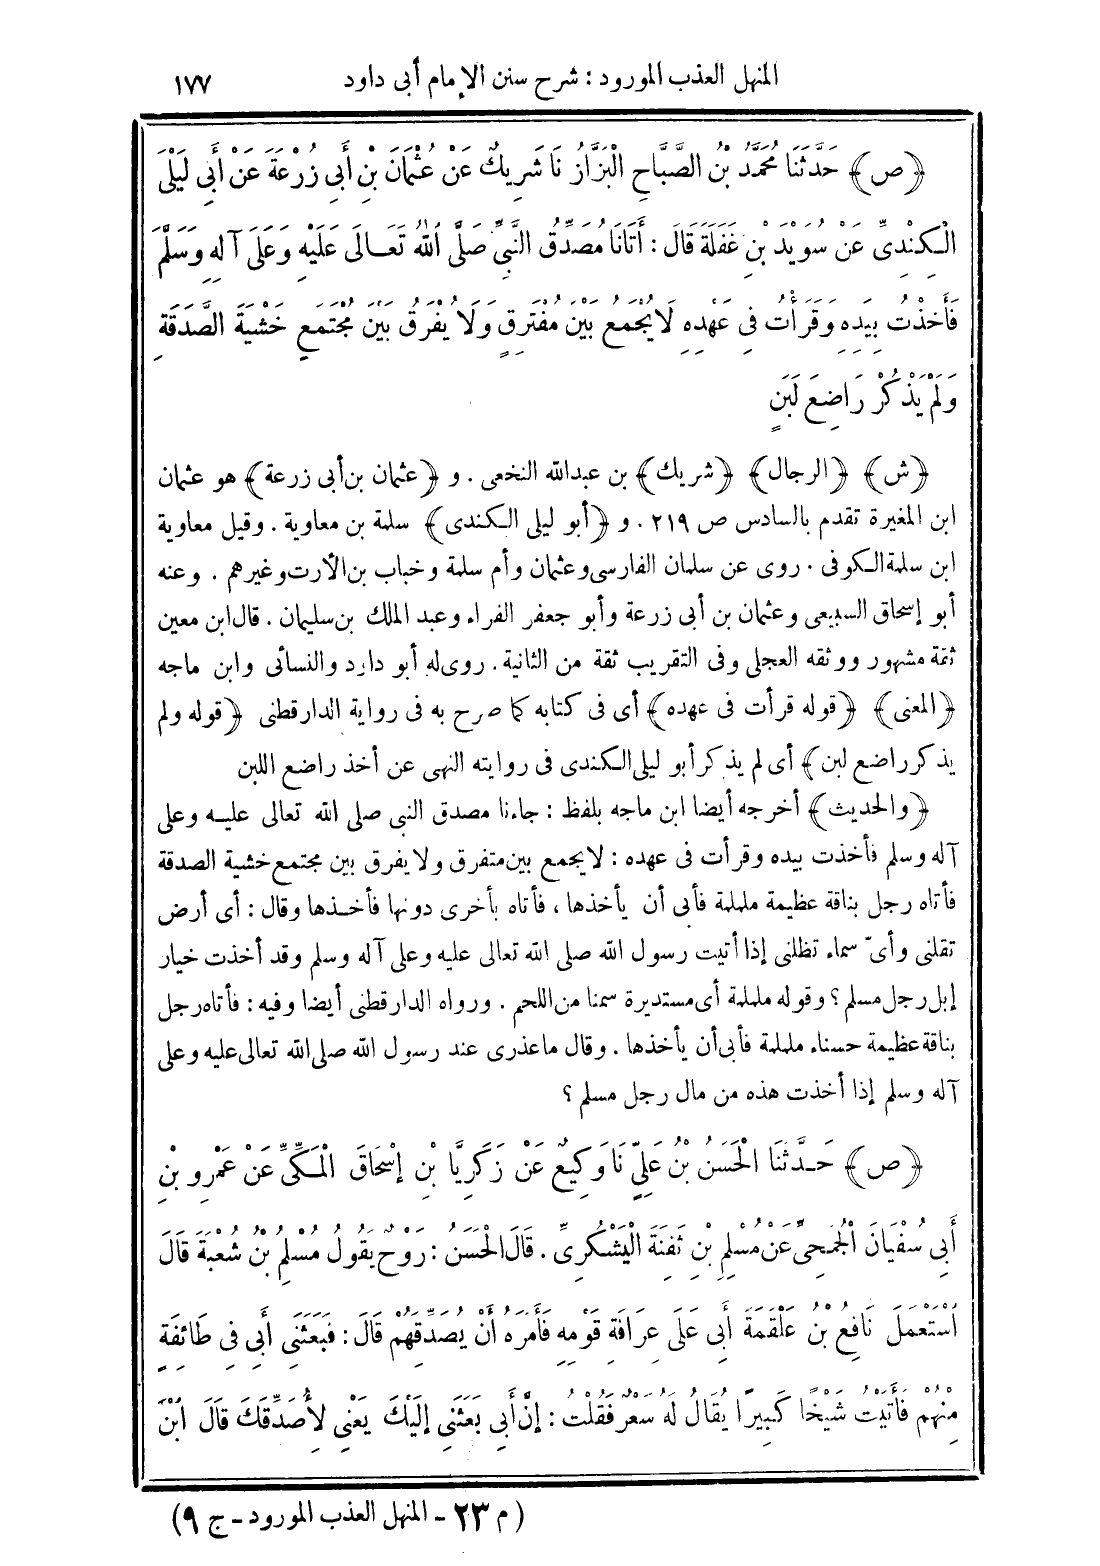 المنهل العذب المورود : شرح سنن الإمام أبى داود ١٧٧
﴿ص﴾ حَدَّثَنَا مُحَمَّدُ بْنُ الصَّبَّاحِ الْبَزَّازُ نَا شَرِيكٌ عَنْ عُثْمَانَ بْنِ أَبِي زُرْعَةَ عَنْ أَبِي لَيْلَى
الْكِنْدِيِّ عَنْ سُوَيْدِ بْنِ غَفَلَةَ قَالَ : أَتَانَا مُصَدِّقُ النَّبِيِّ صَلَّى اللهُ تَعَالَى عَلَيْهِ وَعَلَى آلِهِ وَسَلَّمَ
فَأَخَذْتُ بِيَدِهِ وَقَرَأْتُ فِي عَهْدِهِ لَا يُجْمَعُ بَيْنَ مُفْتَرِقٍ وَلَا يُفْرَقُ بَيْنَ مُجْتَمِعٍ خَشْيَةَ الصَّدَقَةِ
وَلَمْ يَذْكُرْ رَاضِعَ لَبَنٍ
﴿ش﴾ ﴿الرجال﴾ ﴿شريك﴾ بن عبدالله النخعى . و ﴿عثمان بن أبى زرعة﴾ هو عثمان
ابن المغيرة تقدم بالسادس ص ٢١٩ . و ﴿أبو ليلى الكندى﴾ سلمة بن معاوية . وقيل معاوية
ابن سلمة الكوفى . روى عن سلمان الفارسى وعثمان وأم سلمة وخباب بن الأرت وغيرهم . وعنه
أبو إسحاق السبيعى وعثمان بن أبى زرعة وأبو جعفر الفراء وعبد الملك بن سليمان . قال ابن معين
ثقة مشهور ووثقه العجلى وفى التقريب ثقة من الثانية . روى له أبو دارد والنسائى وابن ماجه
﴿المعنى﴾ ﴿قوله قرأت فى عهده﴾ أى فى كتابه كما صرح به فى رواية الدارقطنى ﴿قوله ولم
يذكر راضع لبن﴾ أى لم يذكر أبو ليلى الكندى فى روايته النهى عن أخذ راضع اللبن
﴿والحديث﴾ أخرجه أيضا ابن ماجه بلفظ : جاءنا مصدق النبى صلى الله تعالى عليه وعلى
آله وسلم فأخذت بيده وقرأت فى عهده : لا يجمع بين متفرق ولا يفرق بين مجتمع خشية الصدقة
فأتاه رجل بناقة عظيمة ململمة فأبى أن يأخذها ، فأتاه بأخرى دونها فأخذها وقال : أى أرض
تقلنى وأىّ سماء تظلنى إذا أتيت رسول الله صلى الله تعالى عليه وعلى آله وسلم وقد أخذت خيار
إبل رجل مسلم ؟ وقوله ململمة أى مستديرة سمنا من اللحم . ورواه الدارقطنى أيضا وفيه : فأتاه رجل
بناقة عظيمة حسناء ململمة فأبى أن يأخذها . وقال ما عذرى عند رسول الله صلى الله تعالى عليه وعلى
آله وسلم إذا أخذت هذه من مال رجل مسلم ؟
﴿ص﴾ حَدَّثَنَا الْحَسَنُ بْنُ عَلِيٍّ نَا وَكِيعٌ عَنْ زَكَرِيَّا بْنِ إِسْحَاقَ الْمَكِّيِّ عَنْ عَمْرِو بْنِ
أَبِي سُفْيَانَ الْجُمَحِيِّ عَنْ مُسْلِمِ بْنِ ثَفِنَةَ الْيَشْكُرِيِّ . قَالَ الْحَسَنُ : رَوْحٌ يَقُولُ مُسْلِمُ بْنُ شُعْبَةَ قَالَ
اسْتَعْمَلَ نَافِعُ بْنُ عَلْقَمَةَ أَبِي عَلَى عِرَافَةِ قَوْمِهِ فَأَمَرَهُ أَنْ يُصَدِّقَهُمْ قَالَ : فَبَعَثَنِي أَبِي فِي طَائِفَةٍ
مِنْهُمْ فَأَتَيْتُ شَيْخًا كَبِيرًا يُقَالُ لَهُ سَعْرٌ فَقُلْتُ : إِنَّ أَبِي بَعَثَنِي إِلَيْكَ يَعْنِي لِأُصَدِّقَكَ قَالَ ابْنَ
(م ٢٣ - المنهل العذب المورود - ج ٩)